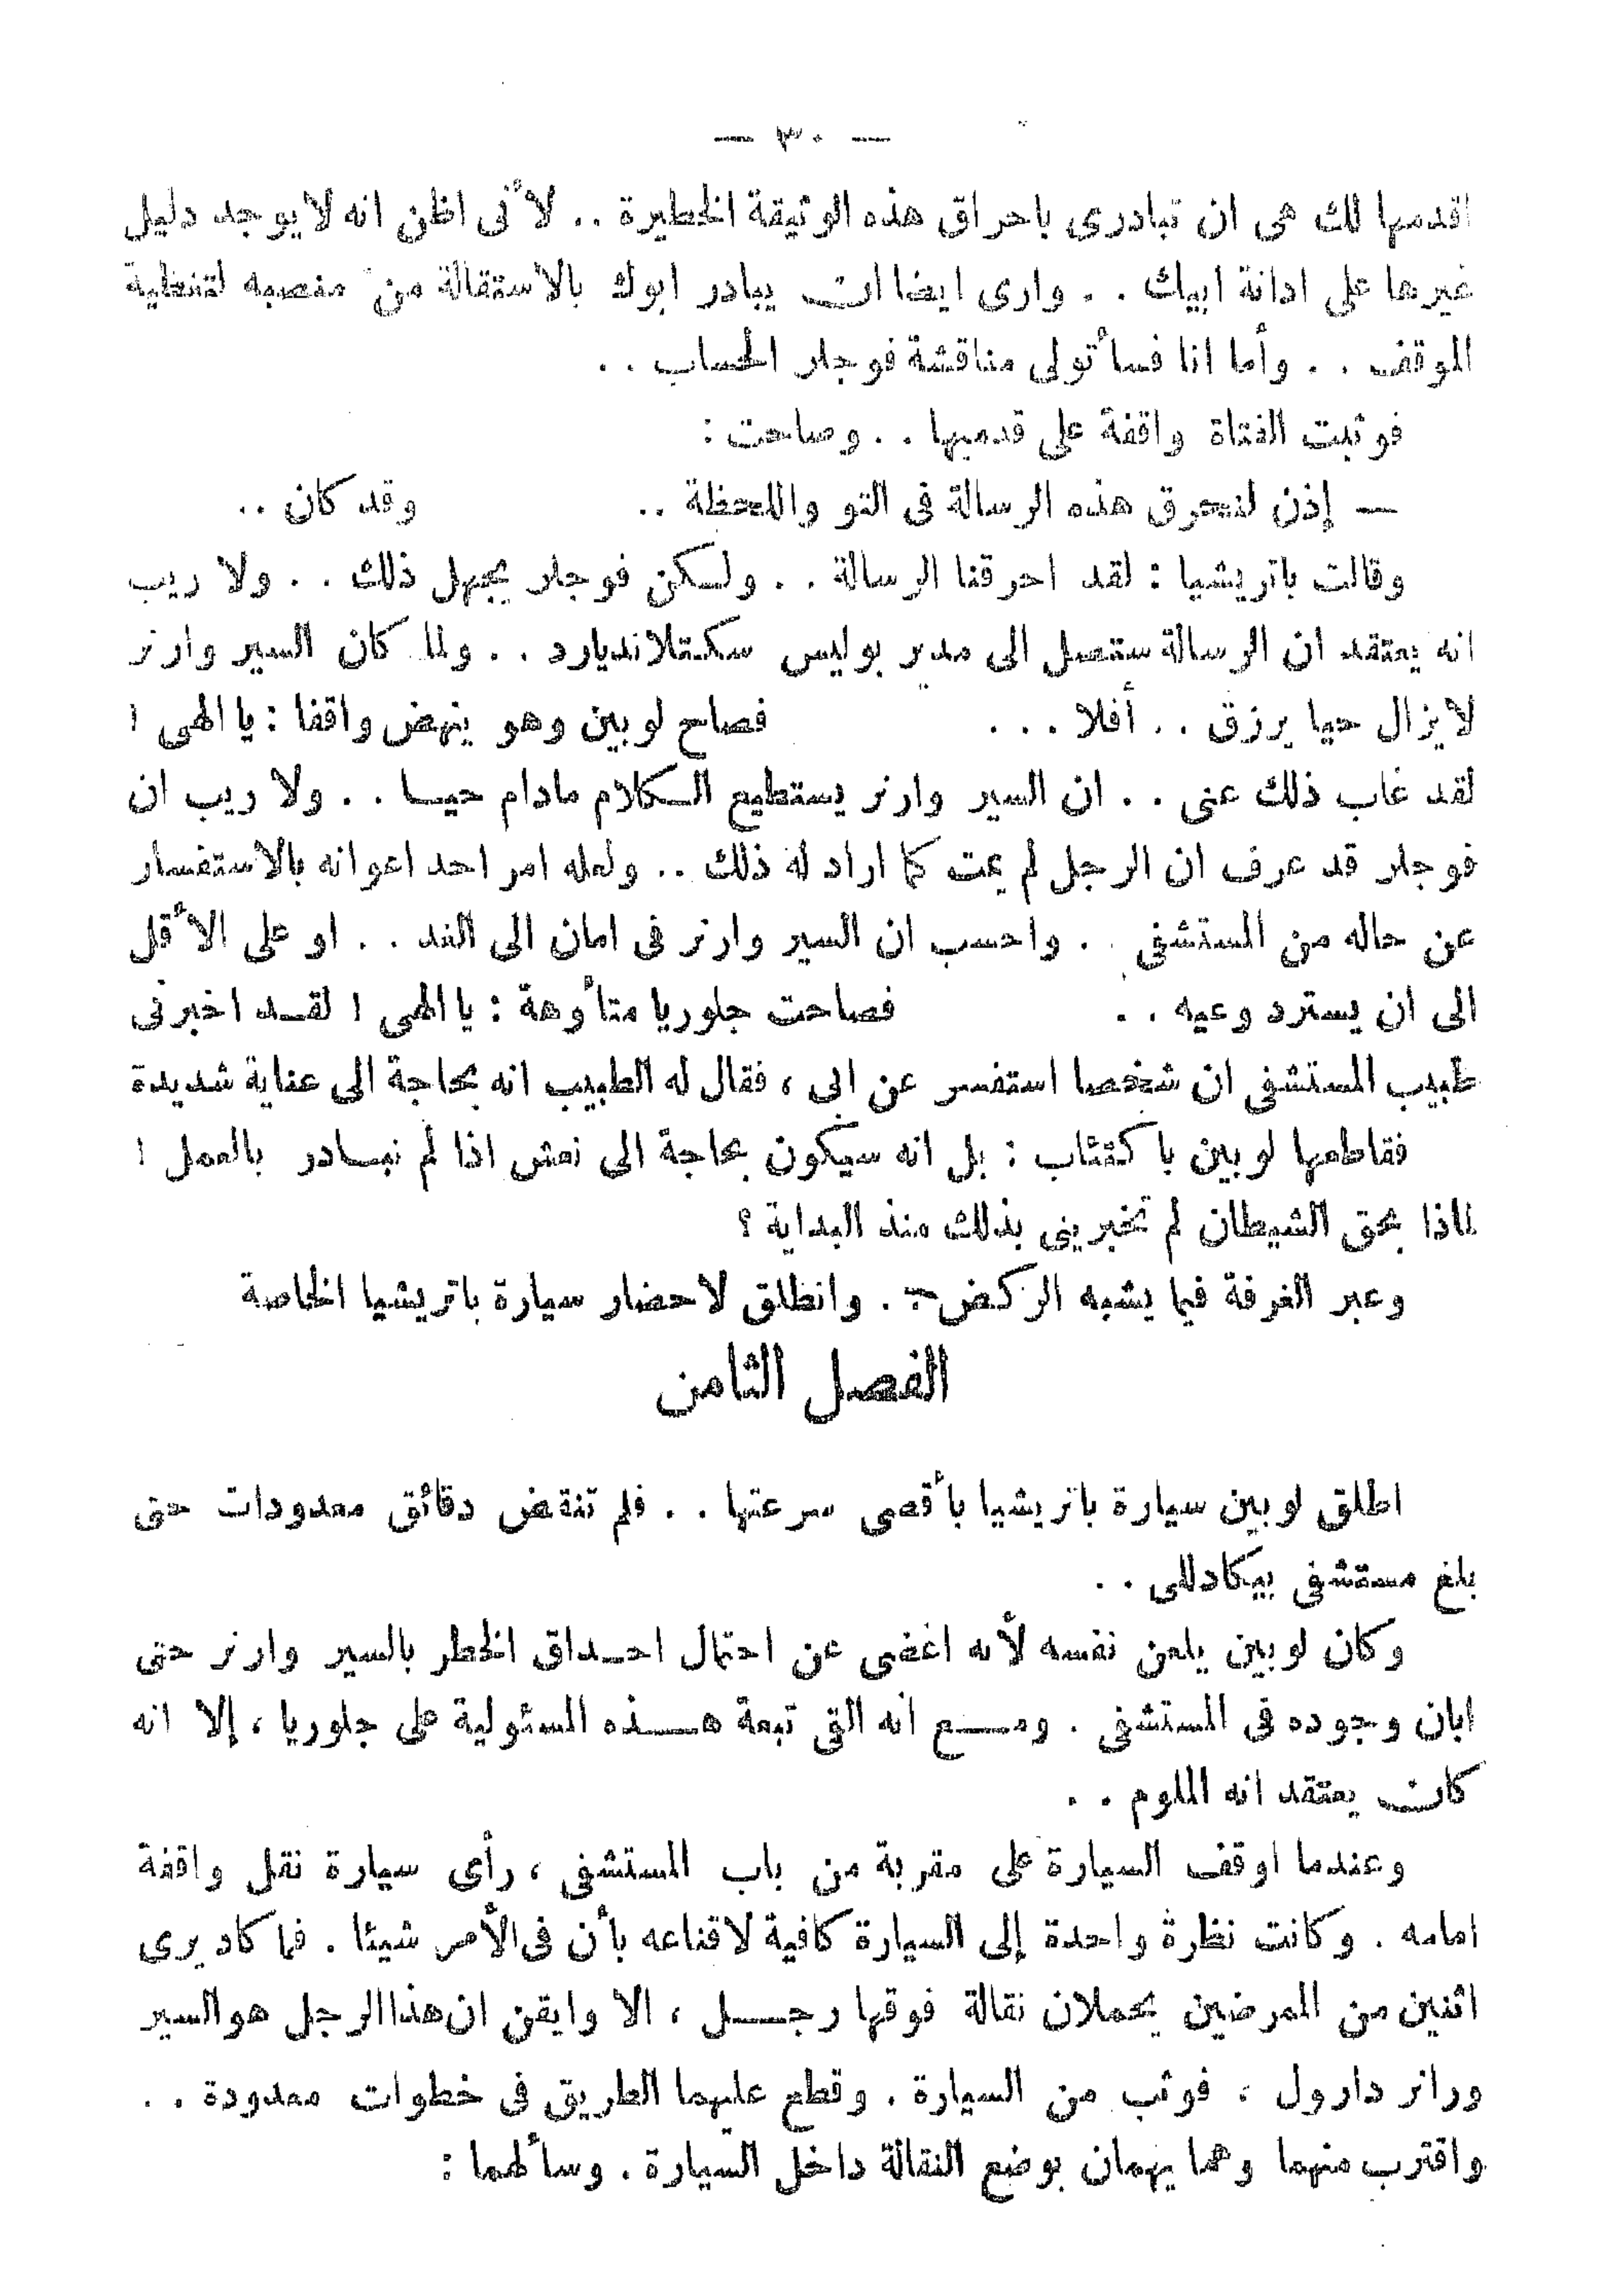 — ٣٠ —
اقدمها لك هى ان تبادرى باحراق هذه الوثيقة الخطيرة .. لأنى اظن انه لا يوجد دليل
غيرها على ادانة ابيك . . وارى ايضا ان يبادر ابوك بالاستقالة من منصبه لتغطية
الموقف . . وأما انا فسأتولى مناقشة فوجلر الحساب . .
فوثبت الفتاة واقفة على قدميها . . وصاحت :
— إذن لنحرق هذه الرسالة فى التو واللحظة .. وقد كان ..
وقالت باتريشيا : لقد احرقنا الرسالة . . ولكن فوجلر يجهل ذلك . . ولا ريب
انه يعتقد ان الرسالة ستصل الى مدير بوليس سكتلانديارد . . ولما كان السير وارنر
لايزال حيا يرزق . . أفلا . . . فصاح لوبين وهو ينهض واقفا : يا الهى !
لقد غاب ذلك عنى . . ان السير وارنر يستطيع الكلام مادام حيا . . ولا ريب ان
فوجلر قد عرف ان الرجل لم يمت كما اراد له ذلك .. ولعله امر احد اعوانه بالاستفسار
عن حاله من المستشفى . . واحسب ان السير وارنر فى امان الى الغد . . او على الأقل
الى ان يسترد وعيه . . فصاحت جلوريا متأوهة : يا الهى ! لقد اخبرنى
طبيب المستشفى ان شخصا استفسر عن ابى ، فقال له الطبيب انه بحاجة الى عناية شديدة
فقاطعها لوبين باكتئاب : بل انه سيكون بحاجة الى نعش اذا لم نبادر بالعمل !
لماذا بحق الشيطان لم تخبرينى بذلك منذ البداية ؟
وعبر الغرفة فيما يشبه الركض . . وانطلق لاحضار سيارة باتريشيا الخاصة
الفصل الثامن
اطلق لوبين سيارة باتريشيا بأقصى سرعتها . . فلم تنقض دقائق معدودات حتى
بلغ مستشفى بيكادللى . .
وكان لوبين يلعن نفسه لأنه اغضى عن احتمال احداق الخطر بالسير وارنر حتى
ابان وجوده فى المستشفى . ومع انه القى تبعة هذه المسئولية على جلوريا ، إلا انه
كان يعتقد انه الملوم . .
وعندما اوقف السيارة على مقربة من باب المستشفى ، رأى سيارة نقل واقفة
امامه . وكانت نظرة واحدة إلى السيارة كافية لاقناعه بأن فى الأمر شيئا . فما كاد يرى
اثنين من الممرضين يحملان نقالة فوقها رجل ، الا وايقن ان هذا الرجل هو السير
ورانر دارول ، فوثب من السيارة . وقطع عليهما الطريق فى خطوات معدودة . .
واقترب منهما وهما يهمان بوضع النقالة داخل السيارة . وسألهما :